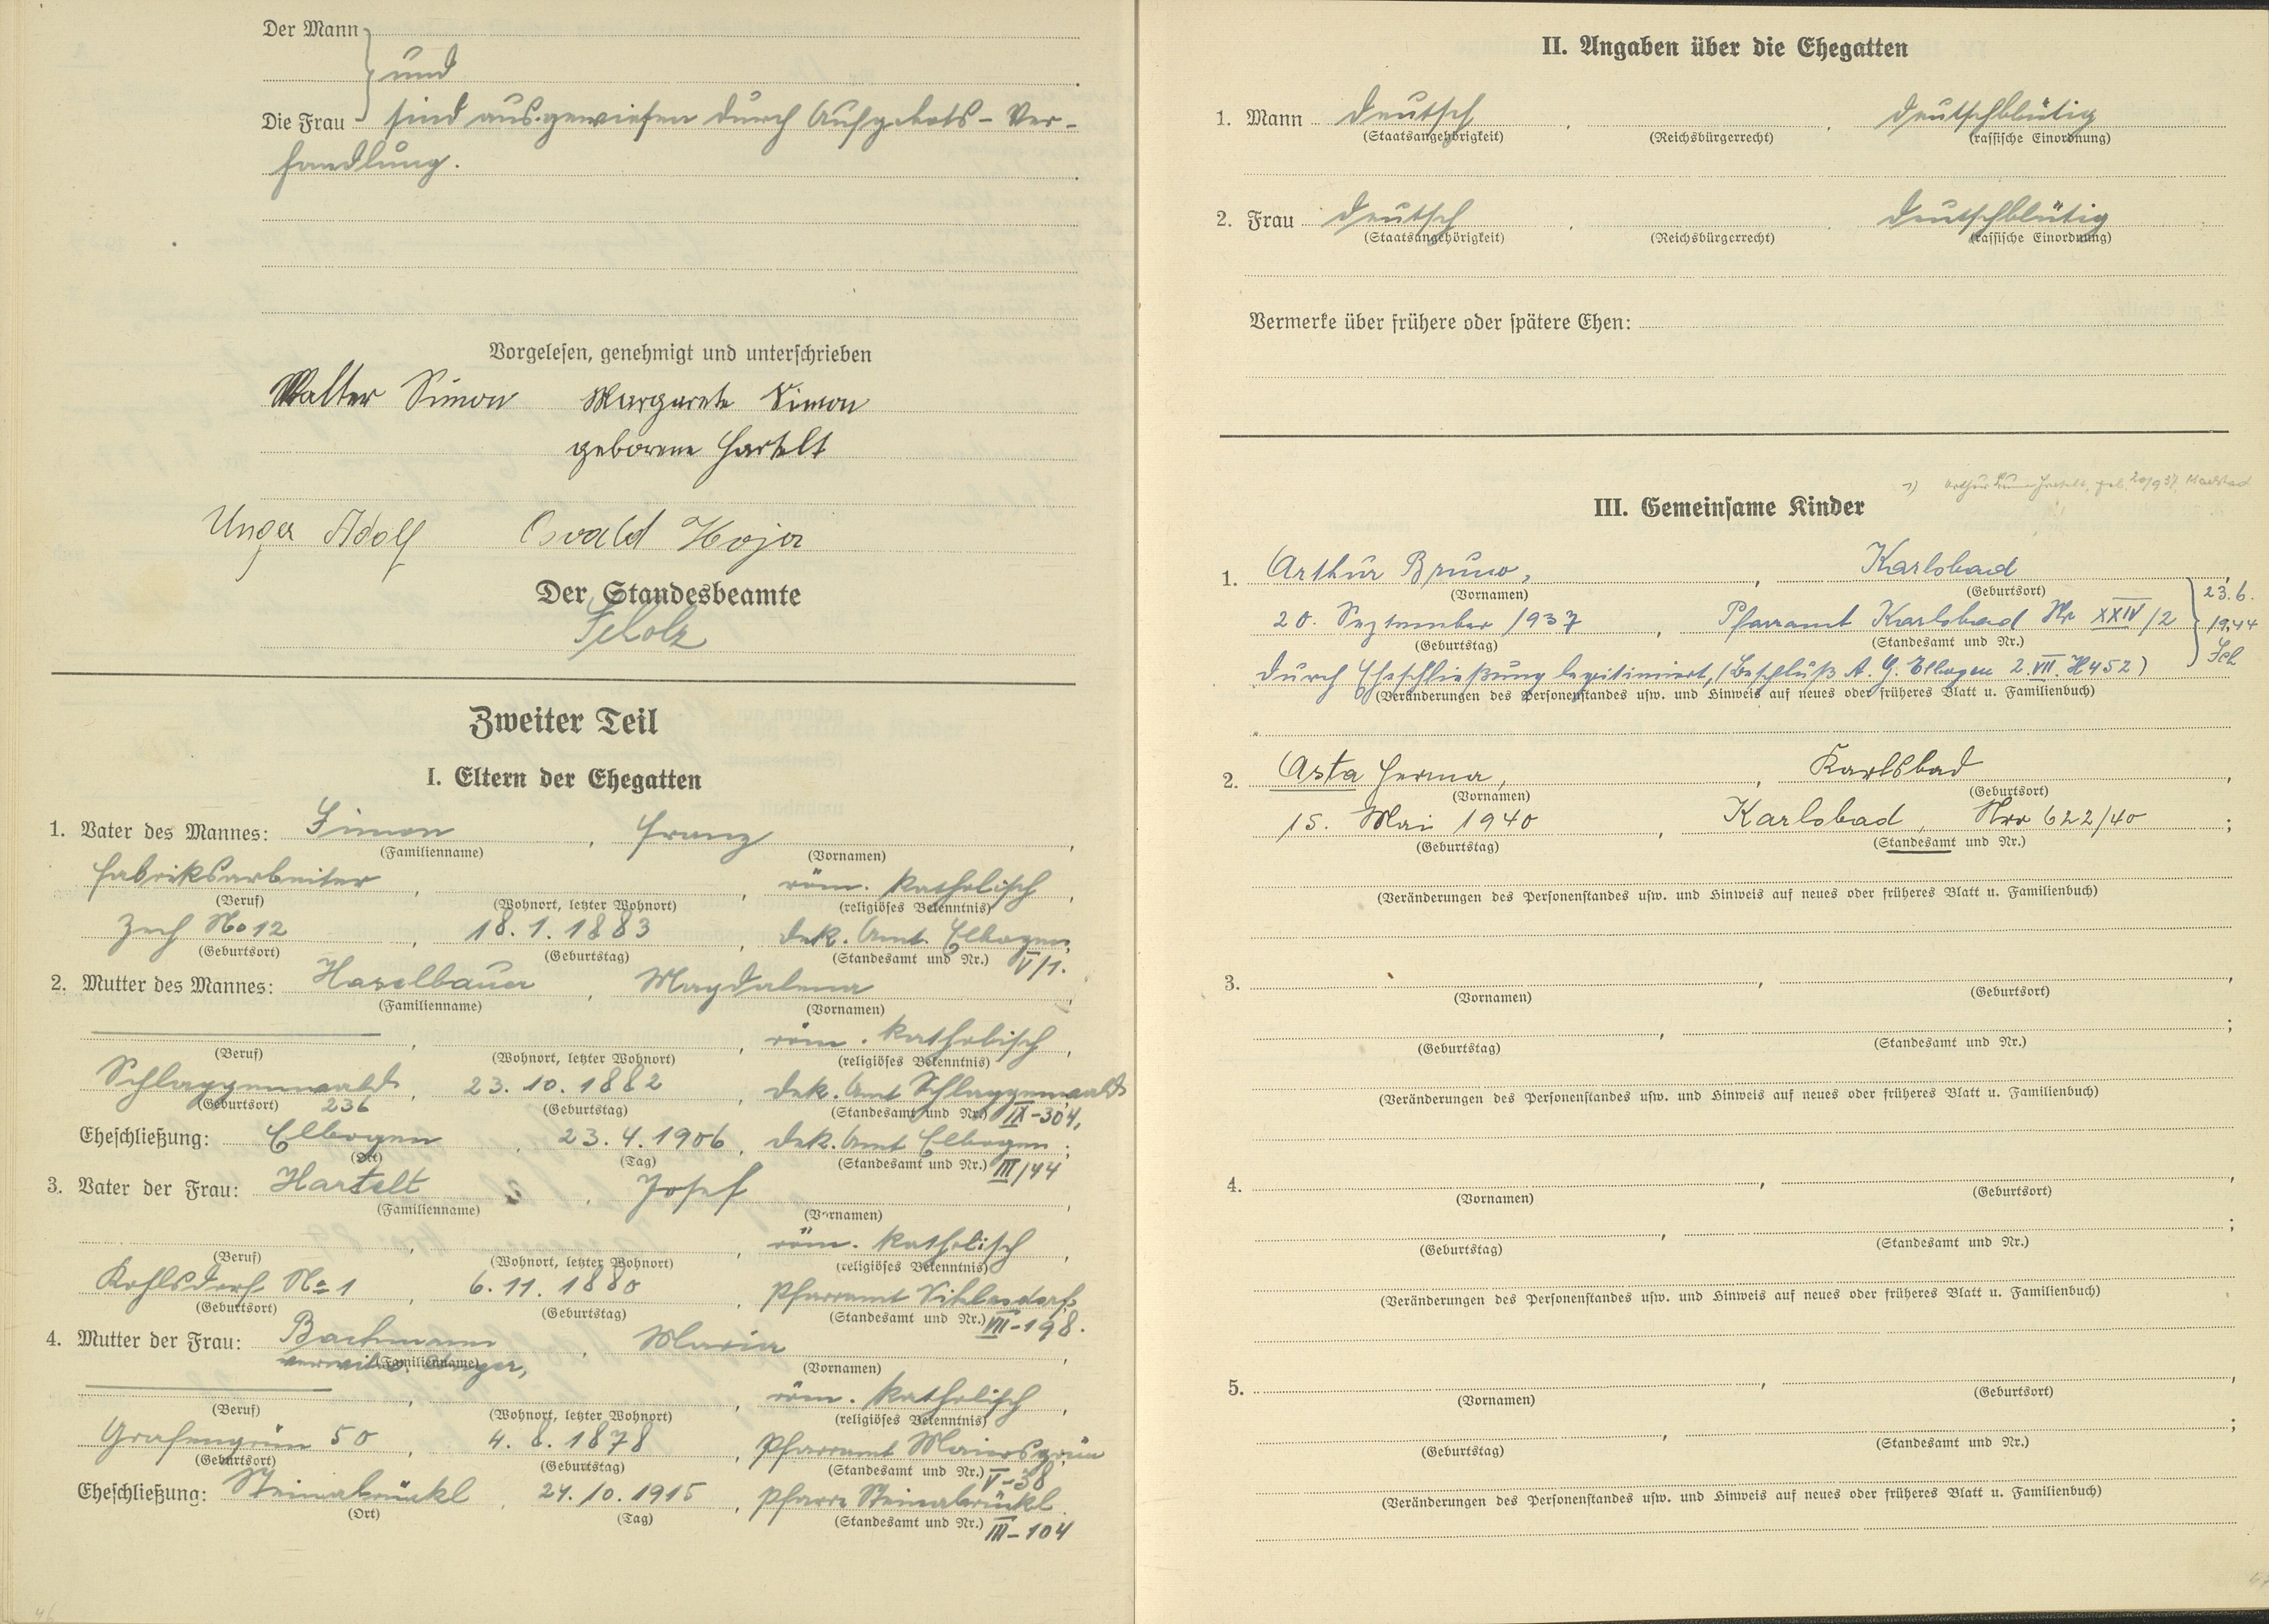 Der Mann
und
Die Frau sind ausgewiesen durch Aufgebots-Ver-
handlung.
Vorgelesen, genehmigt und unterschrieben
Walter Simon Margarete Simon
geborene Hartelt
Unger Adolf Osvald Hojer
Der Standesbeamte
Scholz
Zweiter Teil
I. Eltern der Ehegatten
1. Vater des Mannes: Simon, Franz,
(Familienname) (Vornamen)
Fabriksarbeiter, , röm. katholisch,
(Beruf) (Wohnort, letzter Wohnort) (religiöses Bekenntnis)
Zech No 12, 18. 1. 1883, Dek. Amt. Elbogen,
(Geburtsort) (Geburtstag) (Standesamt und Nr.) V/1.
2. Mutter des Mannes: Haselbauer, Magdalena,
(Familienname) (Vornamen)
, , röm. katholisch,
(Beruf) (Wohnort, letzter Wohnort) (religiöses Bekenntnis)
Schlaggenwald, 23. 10. 1882, Dek. Amt Schlaggenwald
(Geburtsort) 236 (Geburtstag) (Standesamt und Nr.) IX-304,
Eheschließung: Elbogen, 23. 4. 1906, Dek. Amt Elbogen;
(Ort) (Tag) (Standesamt und Nr.) III/44
3. Vater der Frau: Hartelt, Josef,
(Familienname) (Vornamen)
, , röm. katholisch,
(Beruf) (Wohnort, letzter Wohnort) (religiöses Bekenntnis)
Kohlsdorf No 1, 6. 11. 1880, Pfarramt
(Geburtsort) (Geburtstag) (Standesamt und Nr.) VIII-198.
4. Mutter der Frau: Bachmann, Maria,
(Familienname) (Vornamen)
verwitw.
, , röm. katholisch,
(Beruf) (Wohnort, letzter Wohnort) (religiöses Bekenntnis)
Grafengrün 50, 4. 8. 1878, Pfarramt Maiersgrün
(Geburtsort) (Geburtstag) (Standesamt und Nr.) V-38
Eheschließung: Steinabrückl, 24. 10. 1915, Pfarre Steinabrückl
(Ort) (Tag) (Standesamt und Nr.) III-104
46
II. Angaben über die Ehegatten
1. Mann deutsch, , deutschblütig
(Staatsangehörigkeit) (Reichsbürgerrecht) (rassische Einordnung)
2. Frau deutsch, , deutschblütig
(Staatsangehörigkeit) (Reichsbürgerrecht) (rassische Einordnung)
Vermerke über frühere oder spätere Ehen:
1) Arthur Bruno Hartelt, geb. 20/9 37, Karlsbad
III. Gemeinsame Kinder
1. Arthur Bruno, Karlsbad
(Vornamen) (Geburtsort) 23. 6.
20. September 1937, Pfarramt Karlsbad Nr XXIV/2 1944
(Geburtstag) (Standesamt und Nr.) Sch
durch Eheschließung legitimiert, (Beschluß A. G. Elbogen 2. VII. H 452)
(Veränderungen des Personenstandes usw. und Hinweis auf neues oder früheres Blatt u. Familienbuch)
2. Asta Herma, Karlsbad,
(Vornamen) (Geburtsort)
15. Mai 1940, Karlsbad, Nro 622/40;
(Geburtstag) (Standesamt und Nr.)
(Veränderungen des Personenstandes usw. und Hinweis auf neues oder früheres Blatt u. Familienbuch)
3. , ,
(Vornamen) (Geburtsort)
, ;
(Geburtstag) (Standesamt und Nr.)
(Veränderungen des Personenstandes usw. und Hinweis auf neues oder früheres Blatt u. Familienbuch)
4. , ,
(Vornamen) (Geburtsort)
, ;
(Geburtstag) (Standesamt und Nr.)
(Veränderungen des Personenstandes usw. und Hinweis auf neues oder früheres Blatt u. Familienbuch)
5. , ,
(Vornamen) (Geburtsort)
, ;
(Geburtstag) (Standesamt und Nr.)
(Veränderungen des Personenstandes usw. und Hinweis auf neues oder früheres Blatt u. Familienbuch)